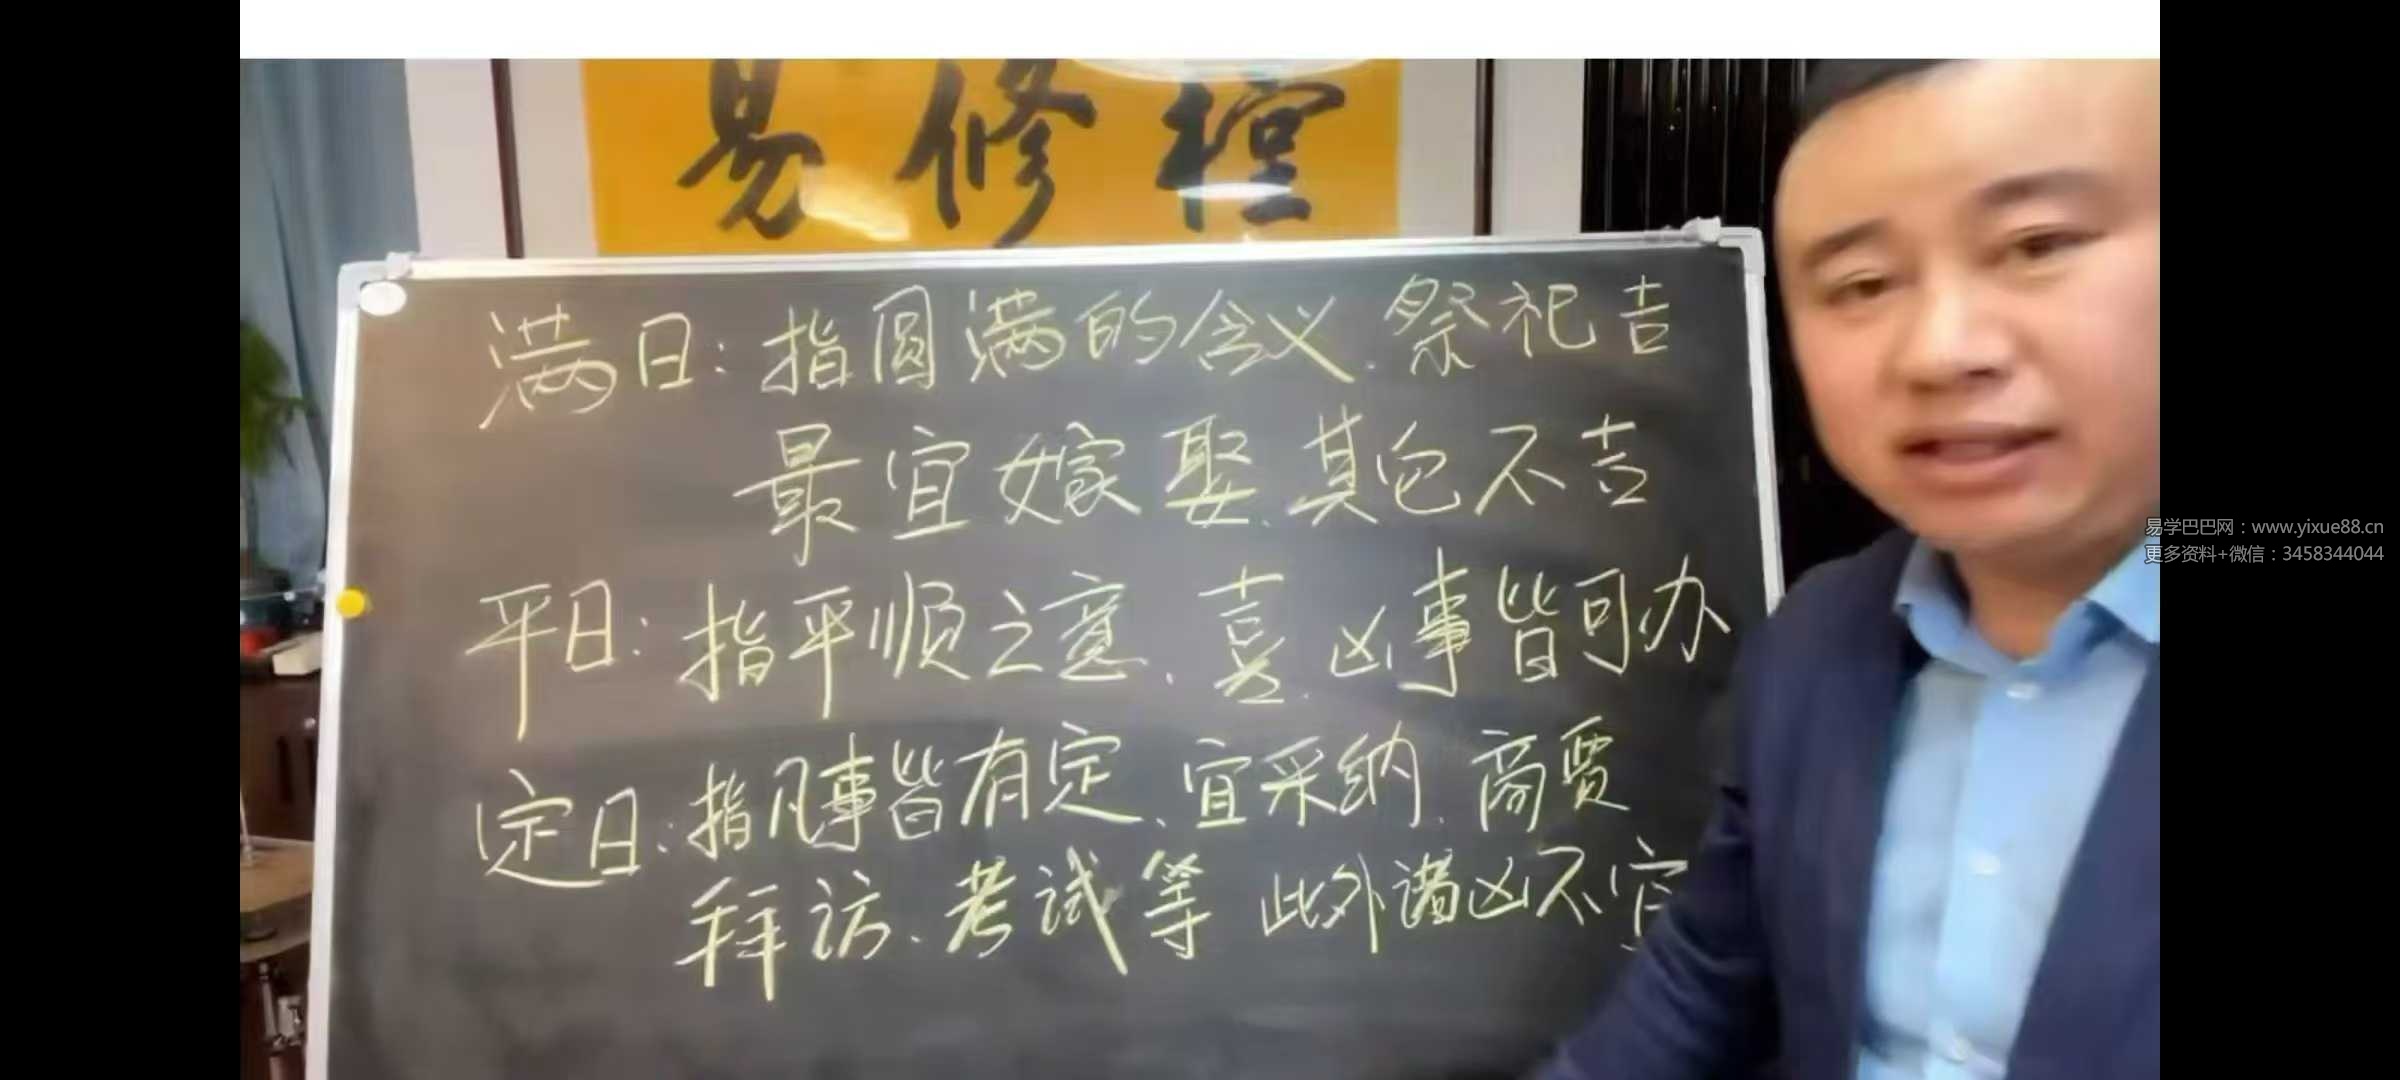 易修控
满日：指圆满的含义.祭祀吉
最宜嫁娶.其它不吉
平日：指平顺之意.喜.凶事皆可办
定日：指凡事皆有定.宜采纳.商贾
拜访.考试等 此外诸凶不宜
易学巴巴网：www.yixue88.cn
更多资料+微信：3458344044